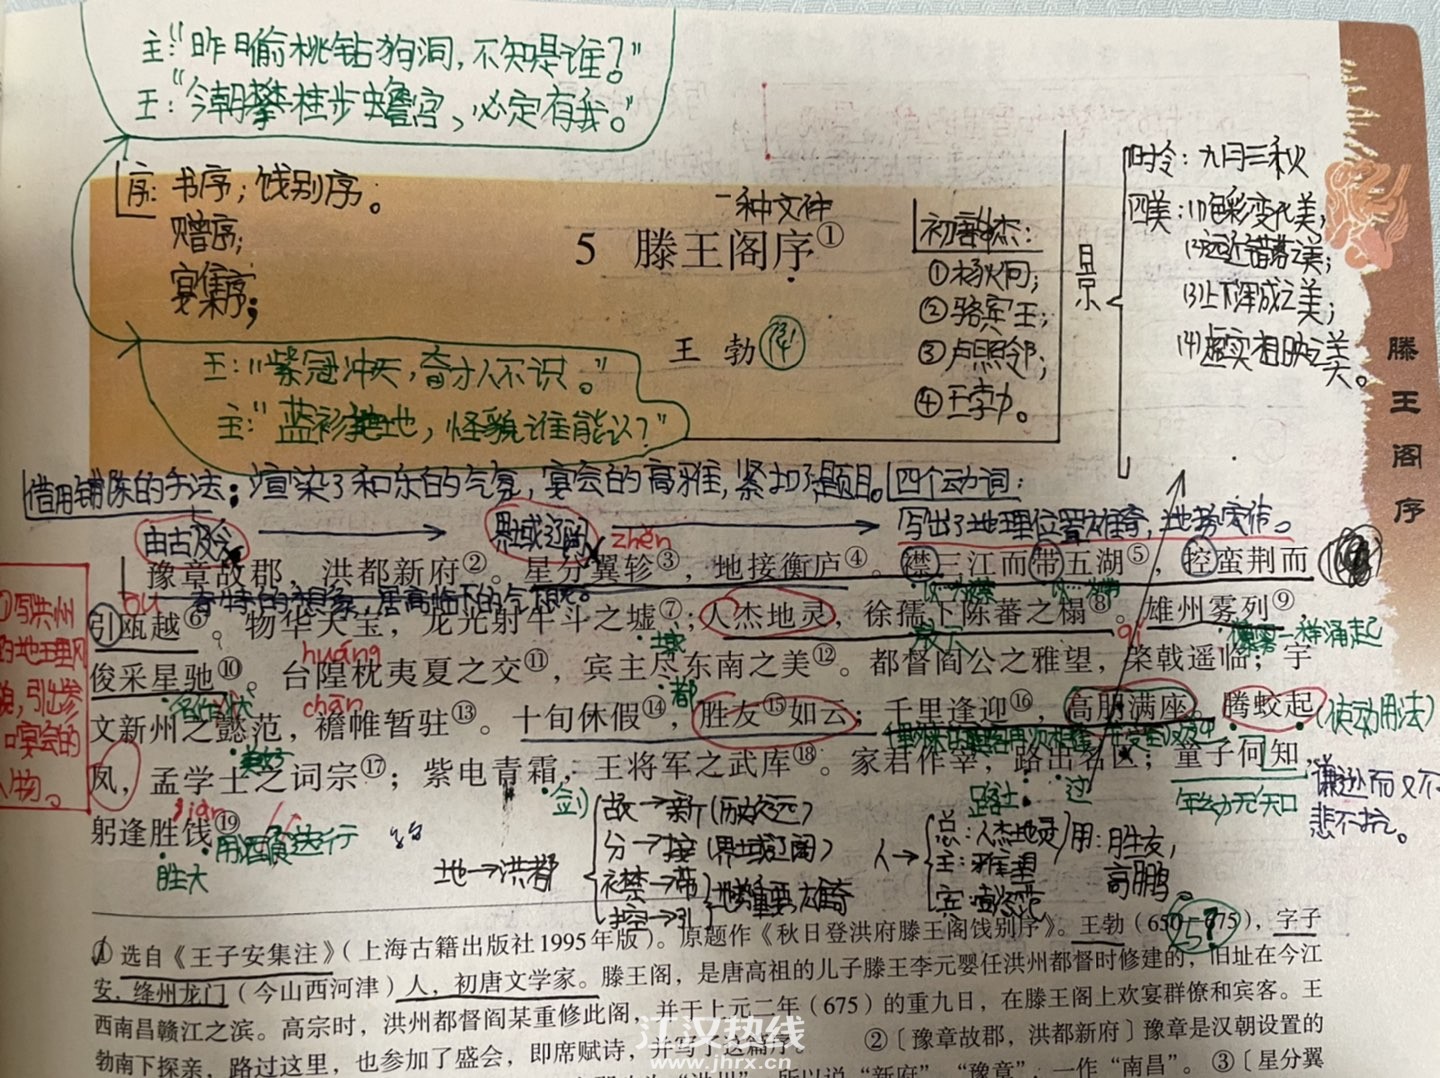 主:"昨日偷桃钻狗洞,不知是谁?"
王:"今朝攀桂步蟾宫,必定有我。"
序:书序;饯别序。
赠序;
宴集序;
一种文体
5 滕王阁序①
王勃
初唐四杰:
①杨炯;
②骆宾王;
③卢照邻;
④王勃。
景
时令:九月三秋
四美:(1)色彩变化美;
(2)远近错落之美;
(3)上下浑成之美;
(4)虚实相映之美。
滕王阁序
王:"紫冠冲天,奇才人不识。"
主:"蓝衫拖地,怪貌谁能认?"
借用铺陈的手法:渲染了和乐的气氛,宴会的高雅,紧扣了题目。
四个动词:
写出了地理位置雄奇,地势宏伟。
由古及今
界域辽阔
zhěn
豫章故郡,洪都新府②。星分翼轸③,地接衡庐④。襟三江而带五湖⑤,控蛮荆而
引瓯越⑥。物华天宝,龙光射牛斗之墟⑦;人杰地灵,徐孺下陈蕃之榻⑧。雄州雾列⑨,
ōu
qǐ
像雾一种涌起
huáng
俊采星驰⑩。台隍枕夷夏之交⑪,宾主尽东南之美⑫。都督阎公之雅望,棨戟遥临;宇
都
chān
文新州之懿范,襜帷暂驻⑬。十旬休假⑭,胜友⑮如云;千里逢迎⑯,高朋满座。腾蛟起
(使动用法)
美好
凤,孟学士之词宗⑰;紫电青霜,王将军之武库⑱。家君作宰,路出名区;童子何知,
剑
路过
年幼无知
谦逊而又不
悲不抗。
jiàn
躬逢胜饯⑲
胜大
用酒食送行
地→洪都
故→新(历史久远)
分→接(界域辽阔)
襟→带
控→引
地势重要,雄奇
人→
总:人杰地灵
主:雅望
宾:懿范
用:胜友,
高朋。
①写洪州
的地理风
貌,引出参
加宴会的
人物。
①选自《王子安集注》(上海古籍出版社1995年版)。原题作《秋日登洪府滕王阁饯别序》。王勃(650—675),字子
安,绛州龙门(今山西河津)人,初唐文学家。滕王阁,是唐高祖的儿子滕王李元婴任洪州都督时修建的,旧址在今江
西南昌赣江之滨。高宗时,洪州都督阎某重修此阁,并于上元二年(675)的重九日,在滕王阁上欢宴群僚和宾客。王
勃南下探亲,路过这里,也参加了盛会,即席赋诗,并写了这篇序。 ②〔豫章故郡,洪都新府〕豫章是汉朝设置的
所以说"新府"。"豫章",一作"南昌"。 ③〔星分翼
江汉热线
www.jhrx.cn